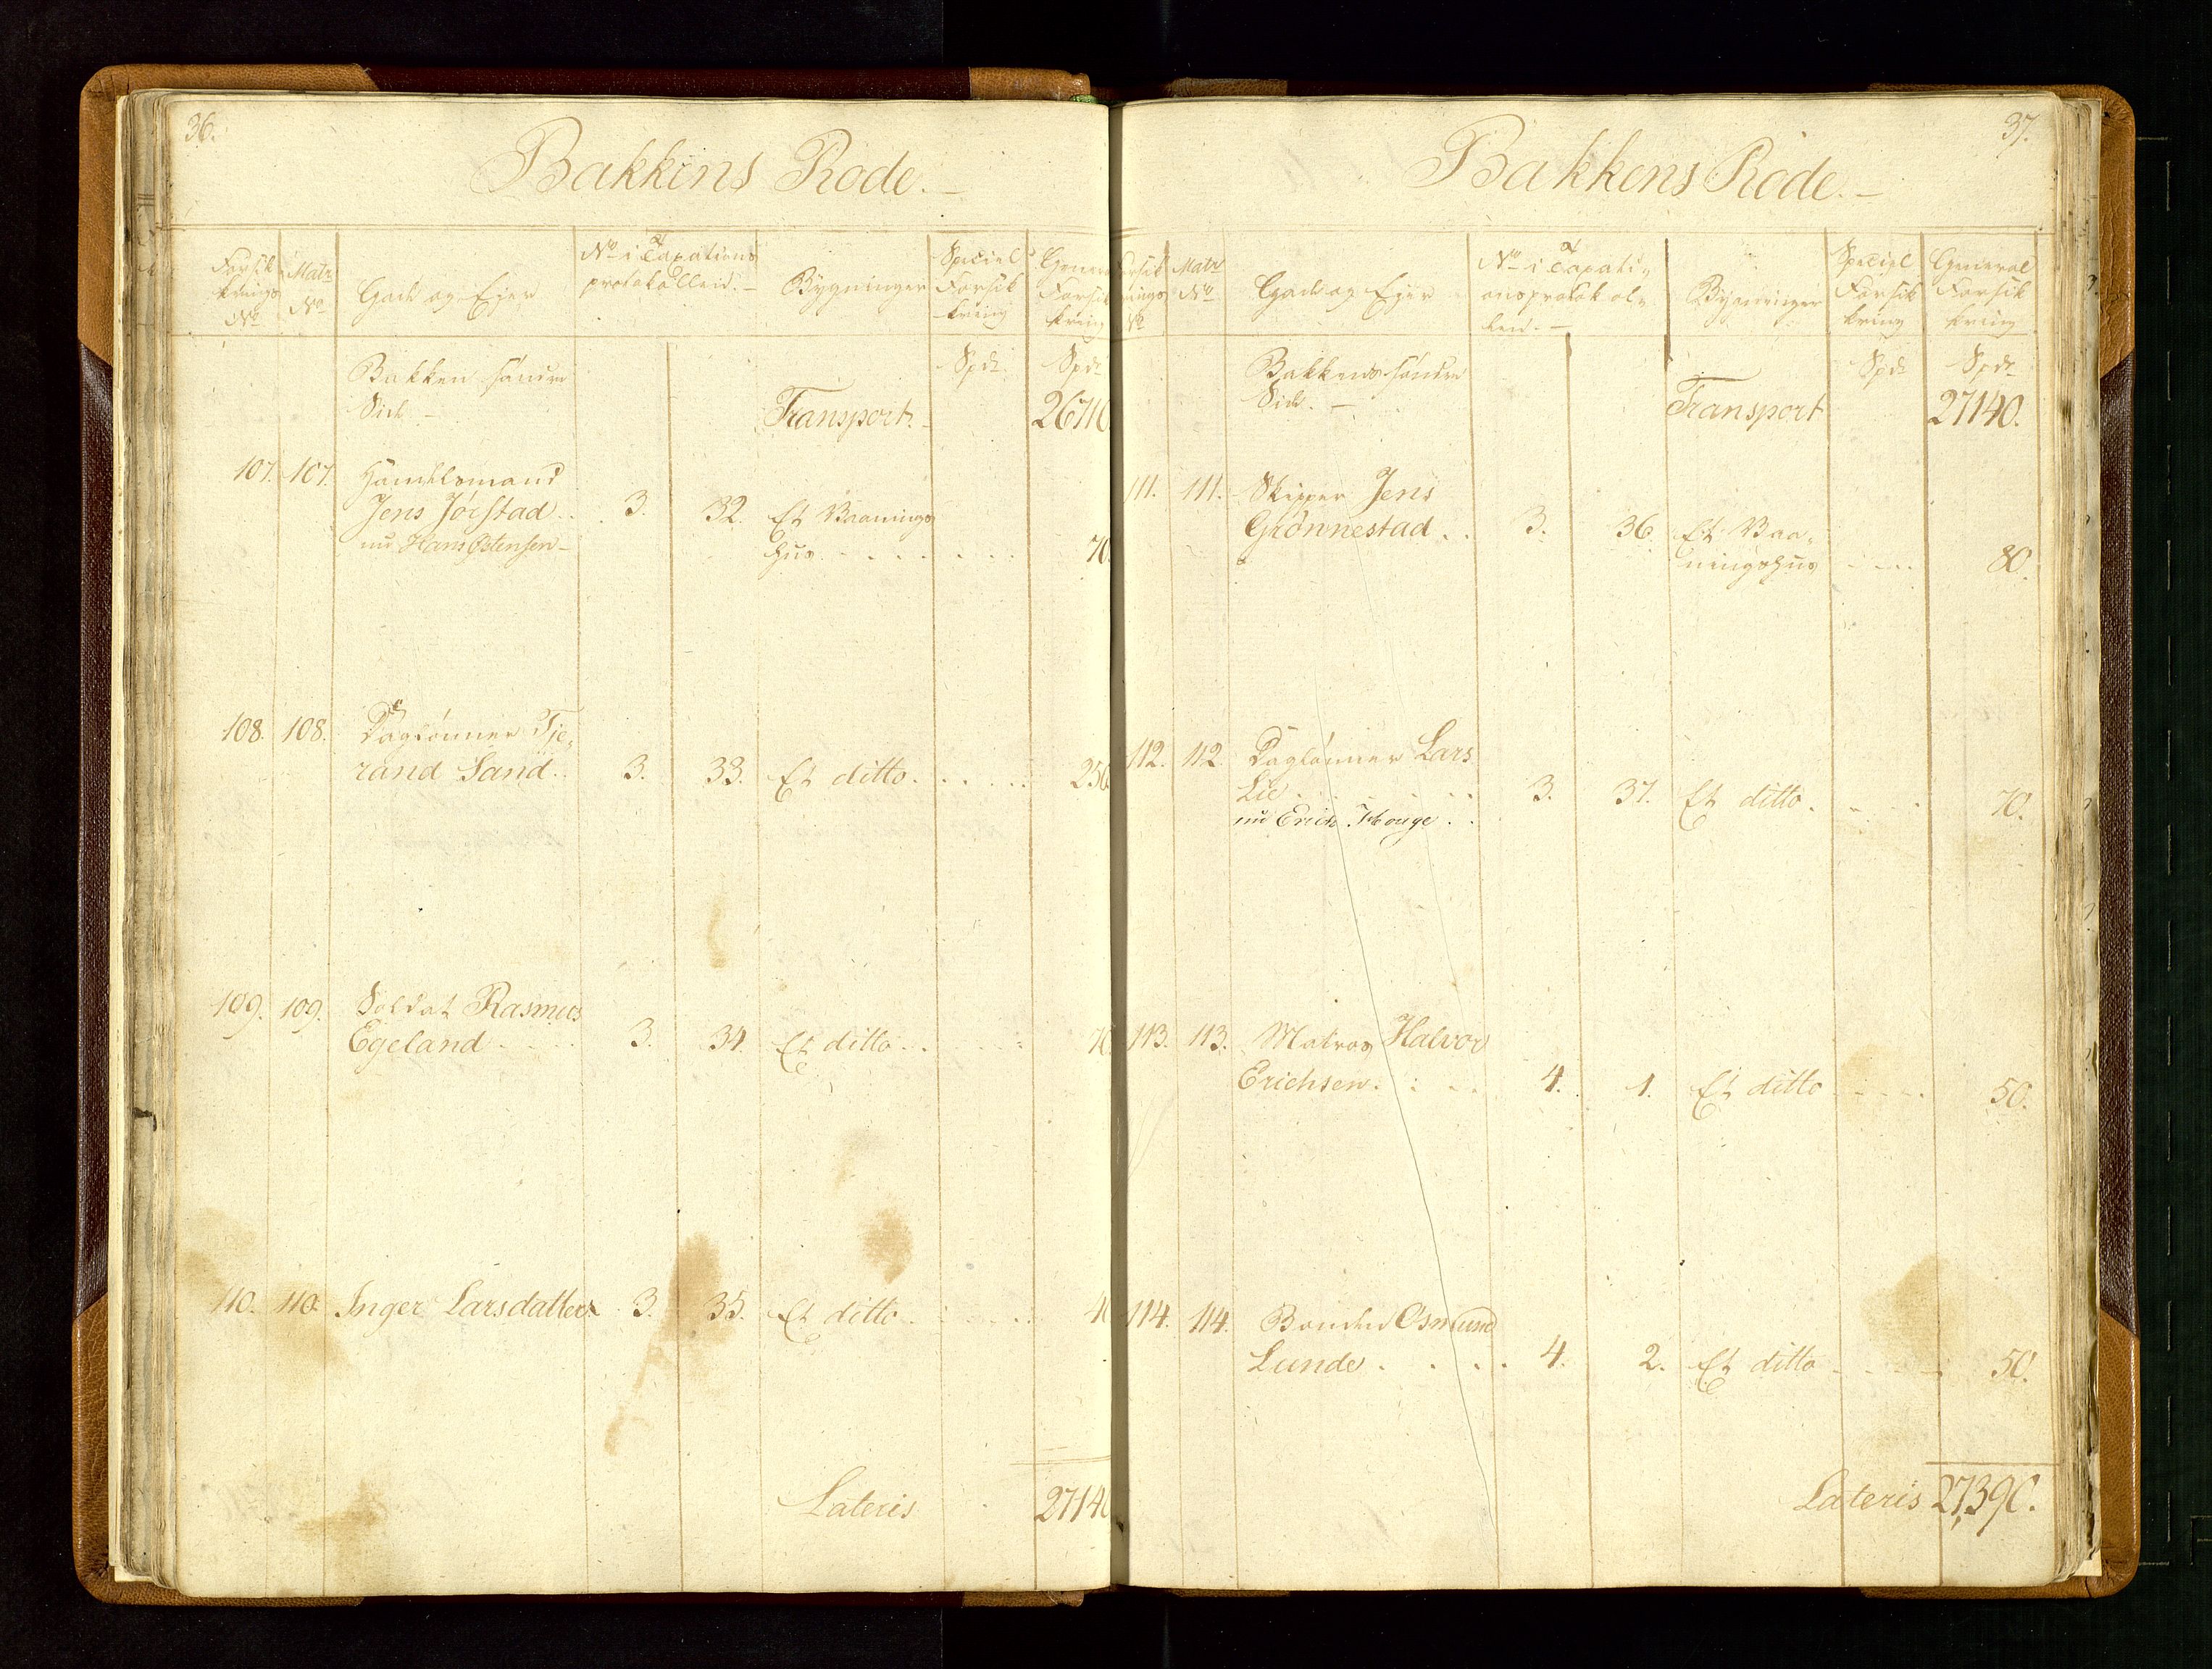 36.
Bakkens Rode.
Forsik
krings
No
Matr
No
Gade og Ejer
No i Taxations
protokollen.
Bygninger
Speciel
Forsik
kring
General
Forsik
kring
Spdr
Spdr
Bakken søndre
Side
Transport.
26710
107. 107. Handelsmand
Jens Jørstad . . 3. 32. Et Vaanings
nu Hans Østensen
huus . . . . 70.
108. 108. Daglønner Tje-
rand Sand . . 3. 33. Et ditto . . . . 250
109. 109. Soldat Rasmus
Egeland . . . 3. 34. Et ditto . . . 70.
110. 110. Inger Larsdatter 3. 35. Et ditto . . . . 40
Lateris 27140
37.
Bakkens Rode.
Forsik
krings
No
Matr
No
Gade og Ejer
No i Taxati-
onsprotokol-
len.
Bygninger
Speciel
Forsik
kring
General
Forsik
kring
Spdr
Spdr
Bakkens søndre
Side.
Transport
27140.
111. 111. Skipper Jens
Grönnestad . . 3. 36. Et Vaa-
ningshus . . . 80.
112. 112. Daglønner Lars
Lie . . . . 3. 37. Et ditto . . . 70.
nu Erich Houge . .
113. 113. Matros Halvor
Erichsen . . . 4. 1. Et ditto . . . . 50.
114. 114. Bonden Osmund
Lunde . . . . 4. 2. Et ditto . . . . 50.
Lateris 27,390.